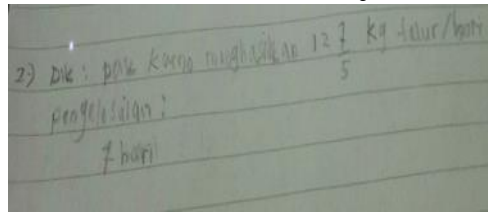 2) Dik : pak Karno menghasilkan 12 7/5 kg telur/hari
Penyelesaian :
7 hari